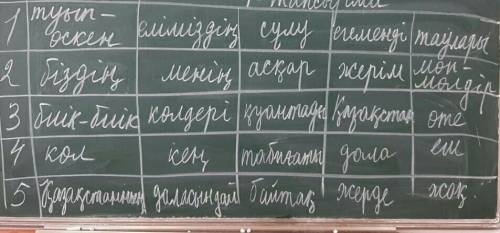 1 туып-өскен еліміздің сұлу егеменді таулары
2 біздің менің асқар жерім мөп-мөлдір
3 биік-биік көлдері қуантады Қазақстан өте
4 көл кең табиғаты дала ел
5 Қазақстанның даласындай байтақ жерде жоқ